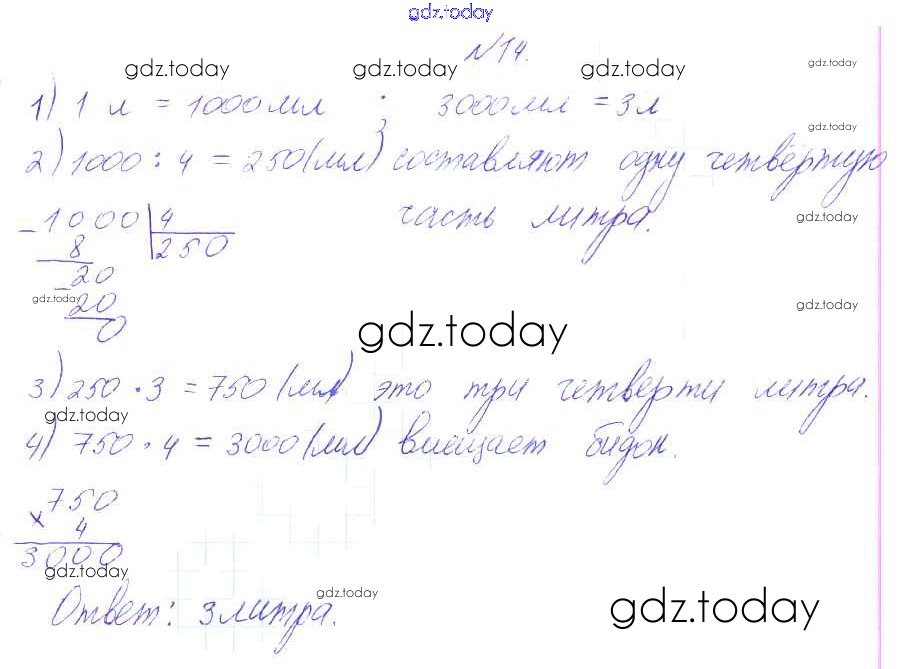 gdz.today
№14.
gdz.today gdz.today gdz.today gdz.today
1) 1 л = 1000 мл ; 3000 мл = 3 л
gdz.today
2) 1000 : 4 = 250 (мл) составляют одну четвёртую
часть литра.
gdz.today
- 1000 | 4
8 | 250
- 20
gdz.today 20
gdz.today
0
gdz.today
3) 250 · 3 = 750 (мл) это три четверти литра.
gdz.today
4) 750 · 4 = 3000 (мл) вмещает бидон.
× 750
4
3000
gdz.today
gdz.today
Ответ: 3 литра.
gdz.today